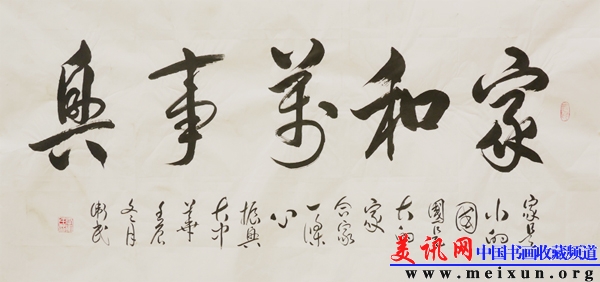 家和萬事興
家是
小的
國
國是
大的
家
合家
一條
心
振興
大中
華
壬辰
冬月
美讯网 中国书画收藏频道
www.meixun.org